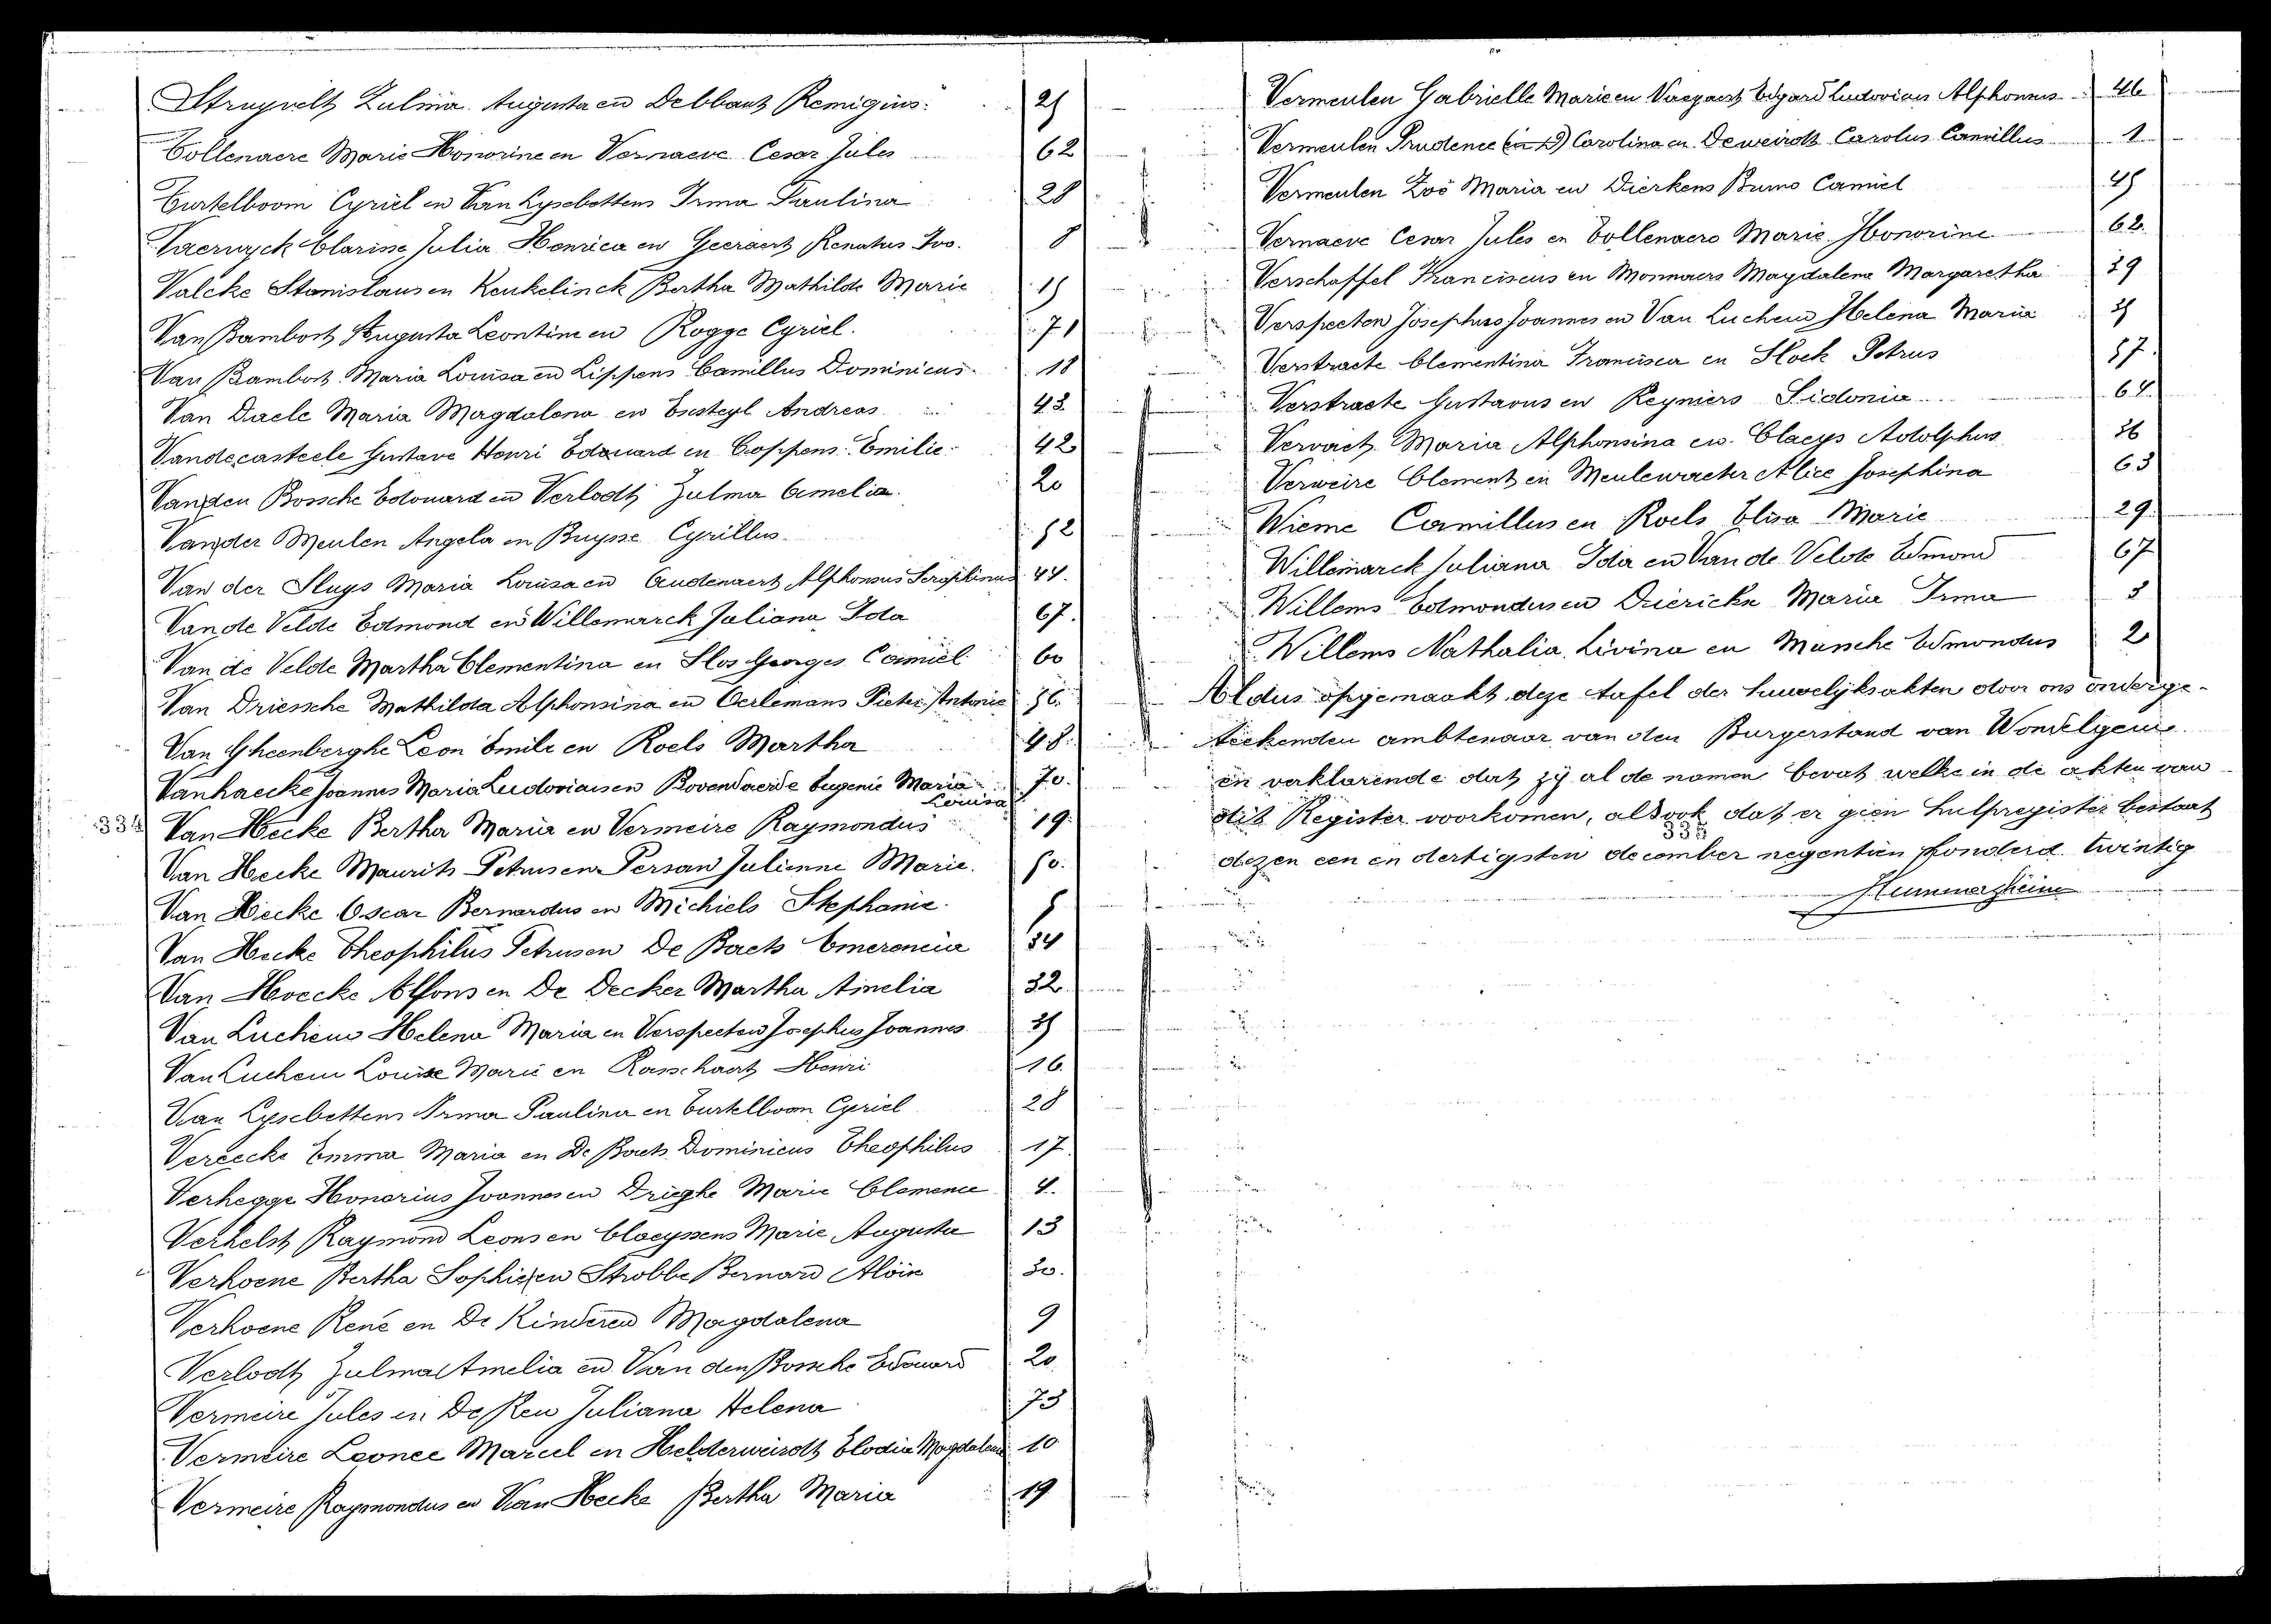 Struyvelt Zulma Augusta en Debbaut Remigius 25
Tollenaere Marie Honorine en Vernaeve Cesar Jules 62
Turtelboom Cyriel en Van Lysebettens Irma Paulina 28
Vaernyck Clarisse Julia Henrica en Geeraert Renatus Ivo. 8
Valcke Stanislaus en Keukelinck Bertha Mathilde Marie 15
Van Bambost Augusta Leontine en Rogge Cyriel. 71
Van Bambost Maria Louisa en Lippens Camillus Dominicus 18
Van Daele Maria Magdalena en Andreas 43
Vandecasteele Gustave Henri Edouard en Coppens Emilie 42
Vanden Bossche Edouard en Verlodt Zulma Amelia. 20
Vander Meulen Angela en Buysse Cyrillus. 52
Van der Sluys Maria Louisa en Audenaert Alphonsus Seraphinus 44.
Van de Velde Edmond en Willemarck Juliana Ida 67.
Van de Velde Martha Clementina en Slos Georges Camiel 60
Van Driessche Mathilda Alphonsina en Oerlemans Pieter Antonie 56.
Van Gheenberghe Leon Emile en Roels Martha 48.
Vanhaecke Joannes Maria Ludovicus en Bovendaerde Eugenie Maria 70.
Louisa
334 Van Hecke Bertha Maria en Vermeire Raymondus 19.
Van Hecke Maurits Petrus en Persan Julienne Marie. 50.
Van Hecke Oscar Bernardus en Michiels Stephanie. 5
Van Hecke Theophilus Petrus en De Baets Emerencia 34
Van Hoecke Alfons en De Decker Martha Amelia 32
Van Luchem Helena Maria en Verspecten Josephus Joannes 35
Van Luchem Louise Marie en Rasschaert Henri 16
Van Lysebettens Irma Paulina en Turtelboom Cyriel 28
Vereecke Emma Maria en De Baets Dominicus Theophilus 17
Verhegge Honorius Joannes en Drieghe Marie Clemence 4.
Verhelst Raymond Leons en Claeyssens Marie Augusta 13
Verhoene Bertha Sophie en Strobbe Bernard Aloïs 30.
Verhoene René en De Kinderen Magdalena 9
Verlodt Zulma Amelia en Van den Bossche Edouard 20
Vermeire Jules en De Reu Juliana Helena 73
Vermeire Leonce Marcel en Helderweirdt Elodie Magdalena 10
Vermeire Raymondus en Van Hecke Bertha Maria 19
Vermeulen Gabrielle Marie en Edgard Ludovicus Alphonsus 46
Vermeulen Prudence Carolina en Deweirdt Carolus Camillus 1
Vermeulen Zoë Maria en Dierkens Bruno Camiel 45
Vernaeve Cesar Jules en Tollenaere Marie Honorine 62.
Verschaffel Franciscus en Monnaers Magdalena Margaretha 39
Verspecten Josephus Joannes en Van Luchem Helena Maria 35
Verstraete Clementina Francisca en Hoek Petrus 57.
Verstraete Gustavus en Reyniers Sidonia 64.
Vervaet Maria Alphonsina en Claeys Adolphus 36
Verweire Clement en Meulewaeter Alice Josephina 63
Wieme Camillus en Roels Elisa Marie 29.
Willemarck Juliana Ida en Van de Velde Edmond 67
Willems Edmondus en Dierickx Maria Irma 3
Willems Nathalia Livina en Mussche Edmondus 2
Aldus opgemaakt deze tafel der huwelijksakten door ons onderge-
teekenden ambtenaar van den Burgerstand van Wondelgem
en verklarende dat zij al de namen bevat welke in de akten van
dit Register voorkomen, alsook dat er geen hulpregister bestaat
335
dezen een en dertigsten december negentien honderd twintig